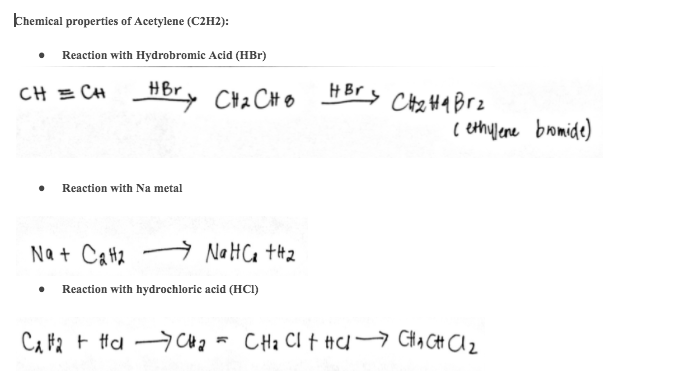 Chemical properties of Acetylene (C2H2):
• Reaction with Hydrobromic Acid (HBr)
CH ≡ CH HBr→ CH2CH HBr→
(ethylene bromide)
• Reaction with Na metal
Na + C2H2 → NaHC2 + H2
• Reaction with hydrochloric acid (HCl)
C2H2 + HCl → CH2 = CH2 Cl + HCl → CH3CHCl2